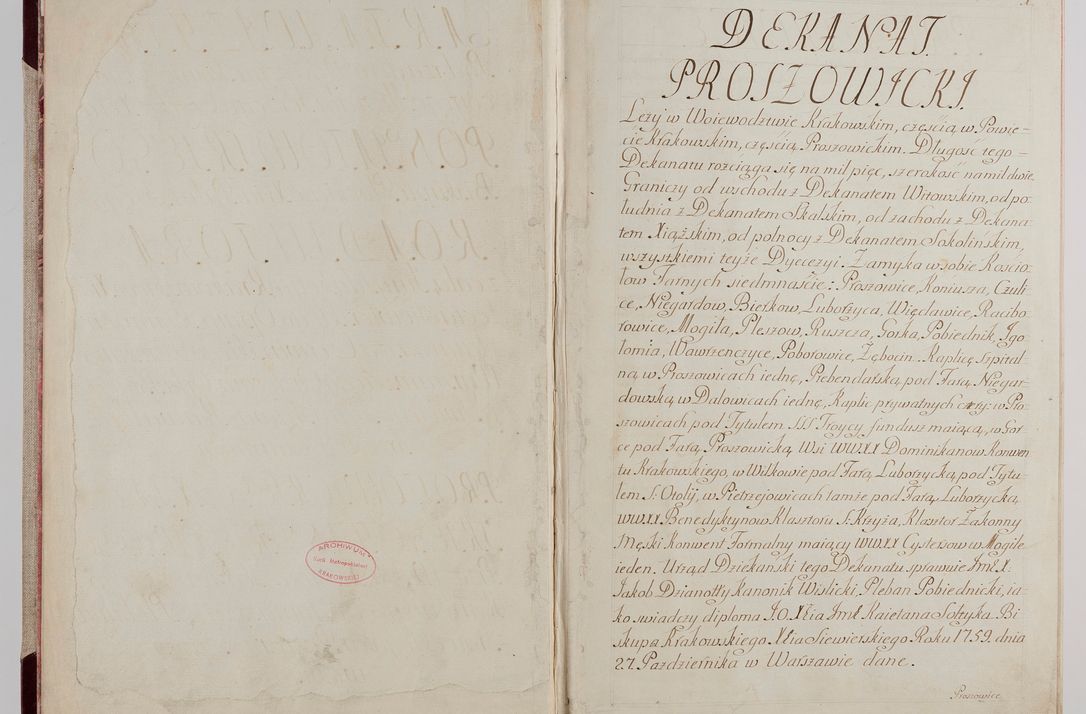 ARCHIWUM
Kurii Metropolitalnej
KRAKOWSKIEJ
1.
DEKANAT
PROSZOWICKI.
Leży w Woiewodztwie Krakowskim, częścią w Powie=
cie Krakowskim, częścią Proszowickim. Długość tego=
Dekanatu rozciąga się na mil pięć, szerokość na mil dwie
Graniczy od wschodu z Dekanatem Witowskim, od po=
łudnia z Dekanatem Skalskim, od zachodu z Dekana=
tem Xiążskim, od połnocy z Dekanatem Sokolińskim,
wszystkiemi teyże Dyecezyi. Zamyka w sobie Kościo=
łow Farnych siedmnaście: Proszowice, Koniusza, Czuli=
ce, Niegardow, Bieżkow, Luborzyca, Więcławice, Racibo=
rowice, Mogiła, Pleszow, Ruszcza, Gorka, Pobiednik, Igo=
łomia, Wawrzenczyce, Poborowice, Zębocin. Kaplicę Szpital=
ną w Proszowicach iednę, Prebendarską pod Farą Niegar=
dowską w Dalowicach iednę, Kaplic prywatnych cztery: w Pro=
szowicach pod Tytułem SSS Troycy fundusz maiącą, w Gor=
ce pod Farą Proszowicką Wsi WWXX Dominikanow Konwen=
tu Krakowskiego, w Wilkowie pod Farą Luborzycką pod Tytu=
łem S. Otolij, w Pietrzejowicach tamże pod Farą Luborzycką
WWXX Benedyktynow Klasztoru S. Krzyża, Klasztor Zakonny
Męski Konwent Formalny maiący WWXX Cystersow w Mogile
ieden. Urząd Dziekański tego Dekanatu sprawuie Jmć X.
Jakob Dzianotty Kanonik Wislicki, Pleban Pobiednicki, ia=
ko swiadczy diploma J.O. Xcia Jmć Kaietana Sołtyka Bi=
skupa Krakowskiego Xcia Siewierskiego Roku 1759. dnia
27. Pazdziernika w Warszawie dane.
Proszowice